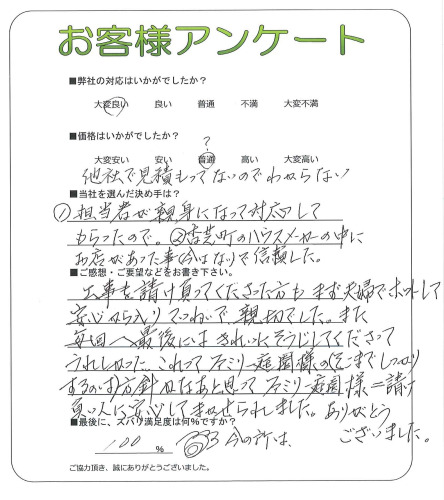 お客様アンケート
■弊社の対応はいかがでしたか？
大変良い 良い 普通 不満 大変不満
■価格はいかがでしたか？
?
大変安い 安い 普通 高い 大変高い
他社で見積もってないのでわからない
■当社を選んだ決め手は？
① 担当者が親身になって対応して
もらったので。②古荘町のハウスメーカーの中に
お店があった事(今はない)で信頼した。
■ご感想・ご要望などをお書き下さい。
工事を請け負ってくださった方も まず夫婦で
安心から入り 親切でした。また
毎回 最後には きれいにそうじしてくださって
うれしかった。これって ファミリー庭園様の(そこまでしっかり
するのは)方針かなあと思って ファミリー庭園様＝請け
負い人に安心してまかせられました。ありがとう
ございました。
■最後に、ズバリ満足度は何％ですか？
100 % 今の所は、
ご協力頂き、誠にありがとうございました。